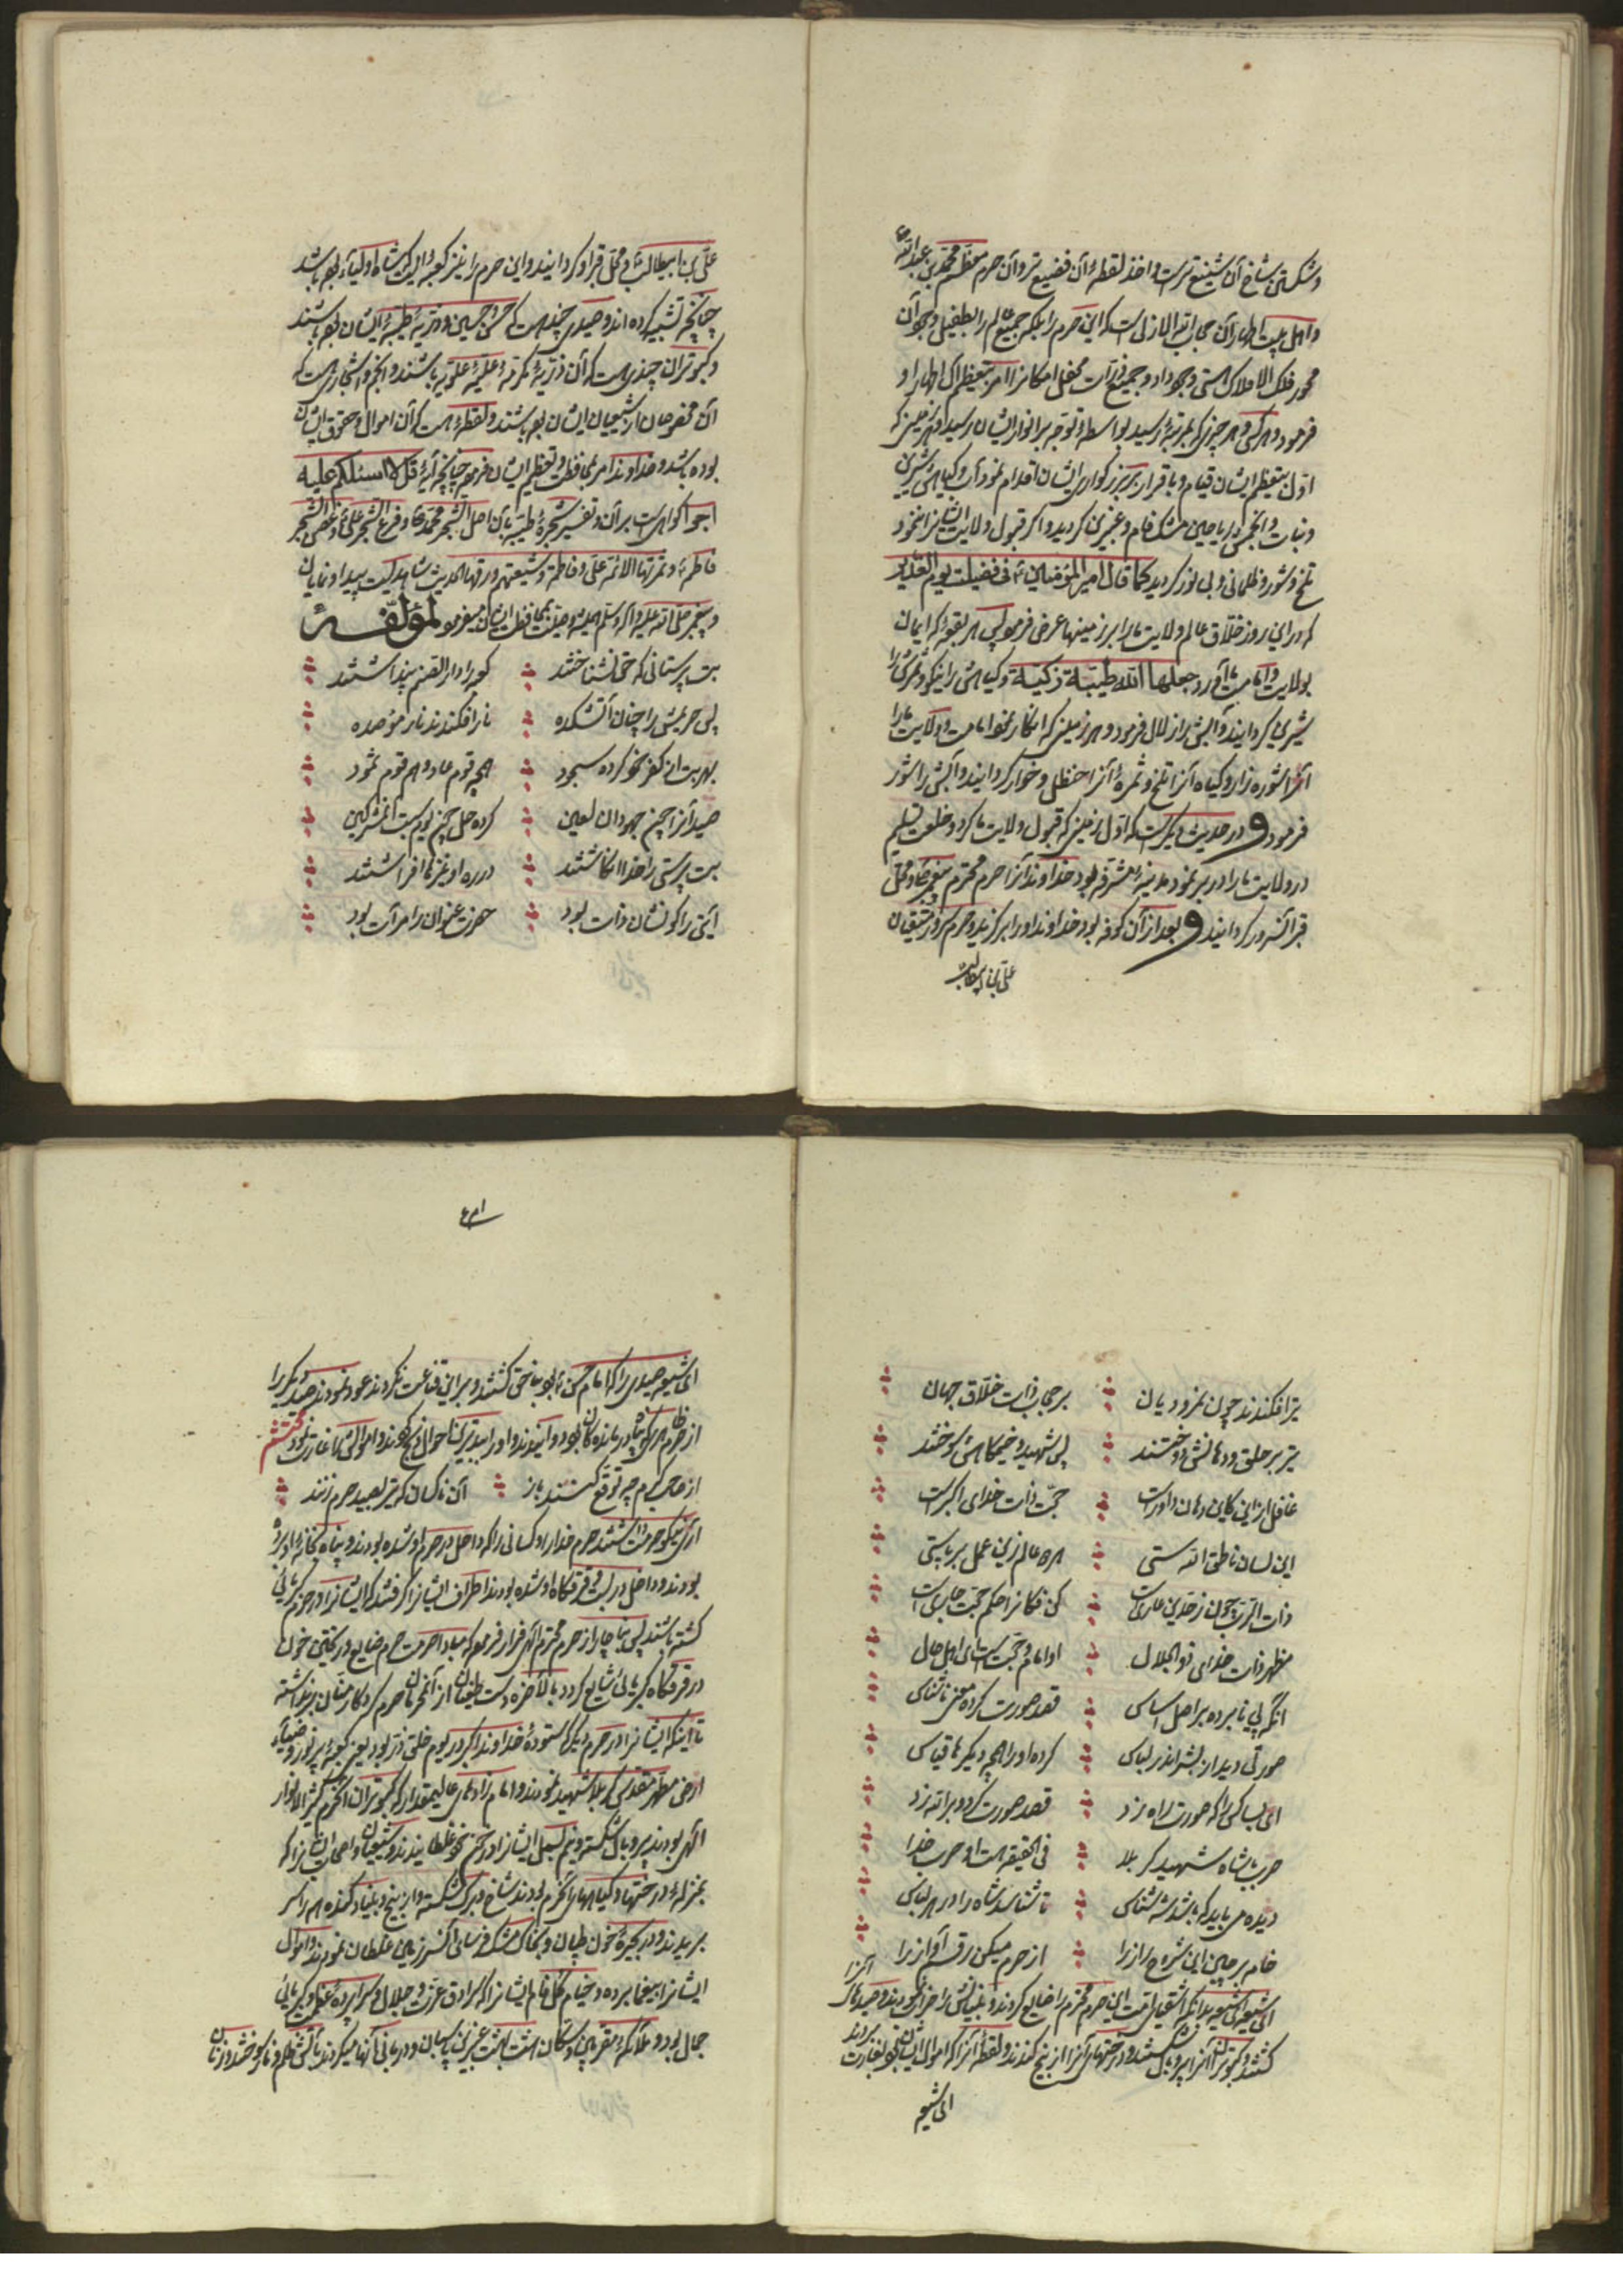 وشکستن شاخ آن شنیع تر است واخذ لقطهٔ آن فضیع تر وآن حرم معظم محمد بن عبدالله
واهل بیت اطهار آن جناب است که این حرم را بلکه جمیع عالم را بطفیل وجود آن
محور فلک الافلاک هستی وجود داد و جمیع ذرات محفل امکانرا امر بتعظیم آل اطهار او
فرمود و هر کس و هر چیز که بمرتبهٔ رسید بواسطهٔ توجه بر انوار ایشان رسید و هر زمینی که
اول بتعظیم ایشان قیام و باقرار بر بزرگواری ایشان اقدام نمود آب و گیاهش شیرین
ونبات وانجمش ریاحین مشک فام و عنبرین گردید و اگر قبول ولایت ایشانرا ننمود
تلخ و شور و ظلمانی و بی نور گردید کما قال امیرالمؤمنین فی فضیلت یوم الغدیر
که در این روز خلاق عالم ولایت ما را بر زمینها عرض فرمود پس هر بقعهٔ که ایمان
بولایت و امامت ما آورد جعلها الله طیبة زکیة و گیاهش را نیکو و ثمرش را
شیرین گردانید و آبش را زلال فرمود و هر زمینی که انکار نمود امامت و ولایت ما را
آنرا شوره زار و گیاه آنرا تلخ و ثمرهٔ آنرا حنظل و خوار گردانید و آبش را شور
فرمود و در حدیث دیگر است که اول زمینی که قبول ولایت ما کرد و خلعت تسلیم
در ولایت ما را در بر نمود مدینهٔ مشرفه بود خداوند آنرا حرم محترم پیغمبر و محل
قبر آنسرور گردانید و بعد از آن کوفه بود خداوند او را برگزید و حرم سرور متقیان
علی بن ابیطالب
علی بن ابیطالب و محل قبر او گردانید و این حرم را نیز کعبه
چنانچه تشبیه کرده اند و صیدی چند است که حسن و حسین و ذریهٔ طیبهٔ ایشان بوده باشند
و کبوتران چندی است که آن ذریهٔ مکرمهٔ علیهٔ علویه باشند و انجم و اشجاری است که
آن مخصوصان از شیعیان ایشان بوده باشند و لقطهٔ است که آن اموال و حقوق ایشان
بوده باشد و خداوند امر بمحافظت و تعظیم ایشان فرموده چنانچه آیهٔ قل لا اسئلکم علیه
اجرا گواه است بر آن و تفسیر شجرهٔ طیبه بآن اصل الشجر محمد و فرع الشجر علی و غصن الشجر
فاطمه و ثمرتها الائمة علی و فاطمة و شیعتهم ورقها الحدیث شاهدیست پیدا و نمایان
و پیغمبر صلی الله علیه و آله و سلم همیشه وصیت بمحافظت ایشان میفرمود لمؤلفه
بت پرستانی که حق نشناختند کعبه را دار الصنم پنداشتند
پس حریمش را چنان آتشکده نار افکندند نار مؤصده
بهر بت از کفر خود کرده سجود همچو قوم عاد و هم قوم ثمود
صید آنرا چون جهودان لعین کرده حل چون یوم سبت آنمشرکین
بت پرستی را خدا انگاشتند در ره او نیزه ها افراشتند
آیتی را کو نشان ذات بود حضرت عنوان را مرآت بود
تیر افکندند چون نمرودیان بر حجاب ذات خلاق جهان
تیر بر حلق و دهانش دوختند پس شهید و خیمگاهش سوختند
غافل از این کاین دهان داور است حجت ذات خدای اکبر است
این لسان ناطق الله ستی امر عالم زین عمل بر پاستی
کن فکانرا حکم حجت جاری است
مظهر ذات خدای ذوالجلال او امام و حجت است ای اهل حال
آنکه پی نابرده بر اصل اساس قصد صورت کرده معنی ناشناس
صورتی دید از بشر اندر لباس کرده او را همچو دیگرها قیاس
ای بسا کس را که صورت راه زد قصد صورت کرد و بر الله زد
حرب با شاه شهید کربلا فی الحقیقه هست او حرب خدا
دیده می باید که باشد شه شناس تا شناسد شاه را در هر لباس
خامه برچین این شروح راز را از حرم میکن رقم آواز را
ای شیعه ای شیعه بدانکه اشقیای امت این حرم محترم را ضایع کردند و بنیانش را خراب نمودند و صیدهای آنرا
کشتند و کبوتران آنرا پر و بال شکستند و درختهای آنرا از بیخ کندند و لقطهٔ آنرا که اموال ایشان بود بغارت بردند
ای شیعه
ای شیعه صیدی را که امام حسن بود بناحق کشتند و بر این قناعت نکردند عود نمودند صید دیگر را
از حرم
از صاحب حرم چه توقع کنند باز آن ناکسان که تیر بصید حرم زنند
آری نیکو حرمت داشتند حرم خدا را و کسانی را که داخل در حرم او شده بودند و پناه بخانهٔ او برده
بودند و داخل در بست و قرقگاه او شده بودند اطراف ایشانرا گرفتند که ایشانرا در حرم کبریائی
کشته باشند پس بناچار از حرم محترم الهی فرار فرمود که مبادا حرمت حرم ضایع و ریختن خون
در قرقگاه کبریائی شایع گردد بالاخره دست
تا اینکه ایشانرا در حرم دیگر که ستودهٔ خداوند اکبر در یوم خلق ذر بود یعنی کعبهٔ پر نور و ضیاء
ارض مطهر مقدس کربلا شهید نمودند و امام زادهای عالیمقدار که کبوتران آنحرم کثیر الانوار
الهی بودند پر و بال شکسته و نیم بسمل ایشانرا در خون خود غلطانیدند و شیعیان و اصحاب ایشانرا که
بمنزلهٔ درختها و گیاههای آنحرم بودند شاخ و برگ شکسته و از بیخ و بنیاد کنده هم را سر
بریدند و در بحیرهٔ خون طپان و بخاک مشک فرسای آنسرزمین غلطان نمودند و اموال
ایشانرا بیغما برده و خیام فلک فام ایشانرا که سرادق عزت و جلال و سراپردهٔ عظمت و کبریائی
جمال بود و ملائکهٔ مقربین و سکان هشت بهشت عنبرین پاسبان و دربانی آنها میکردند بآتش ظلم